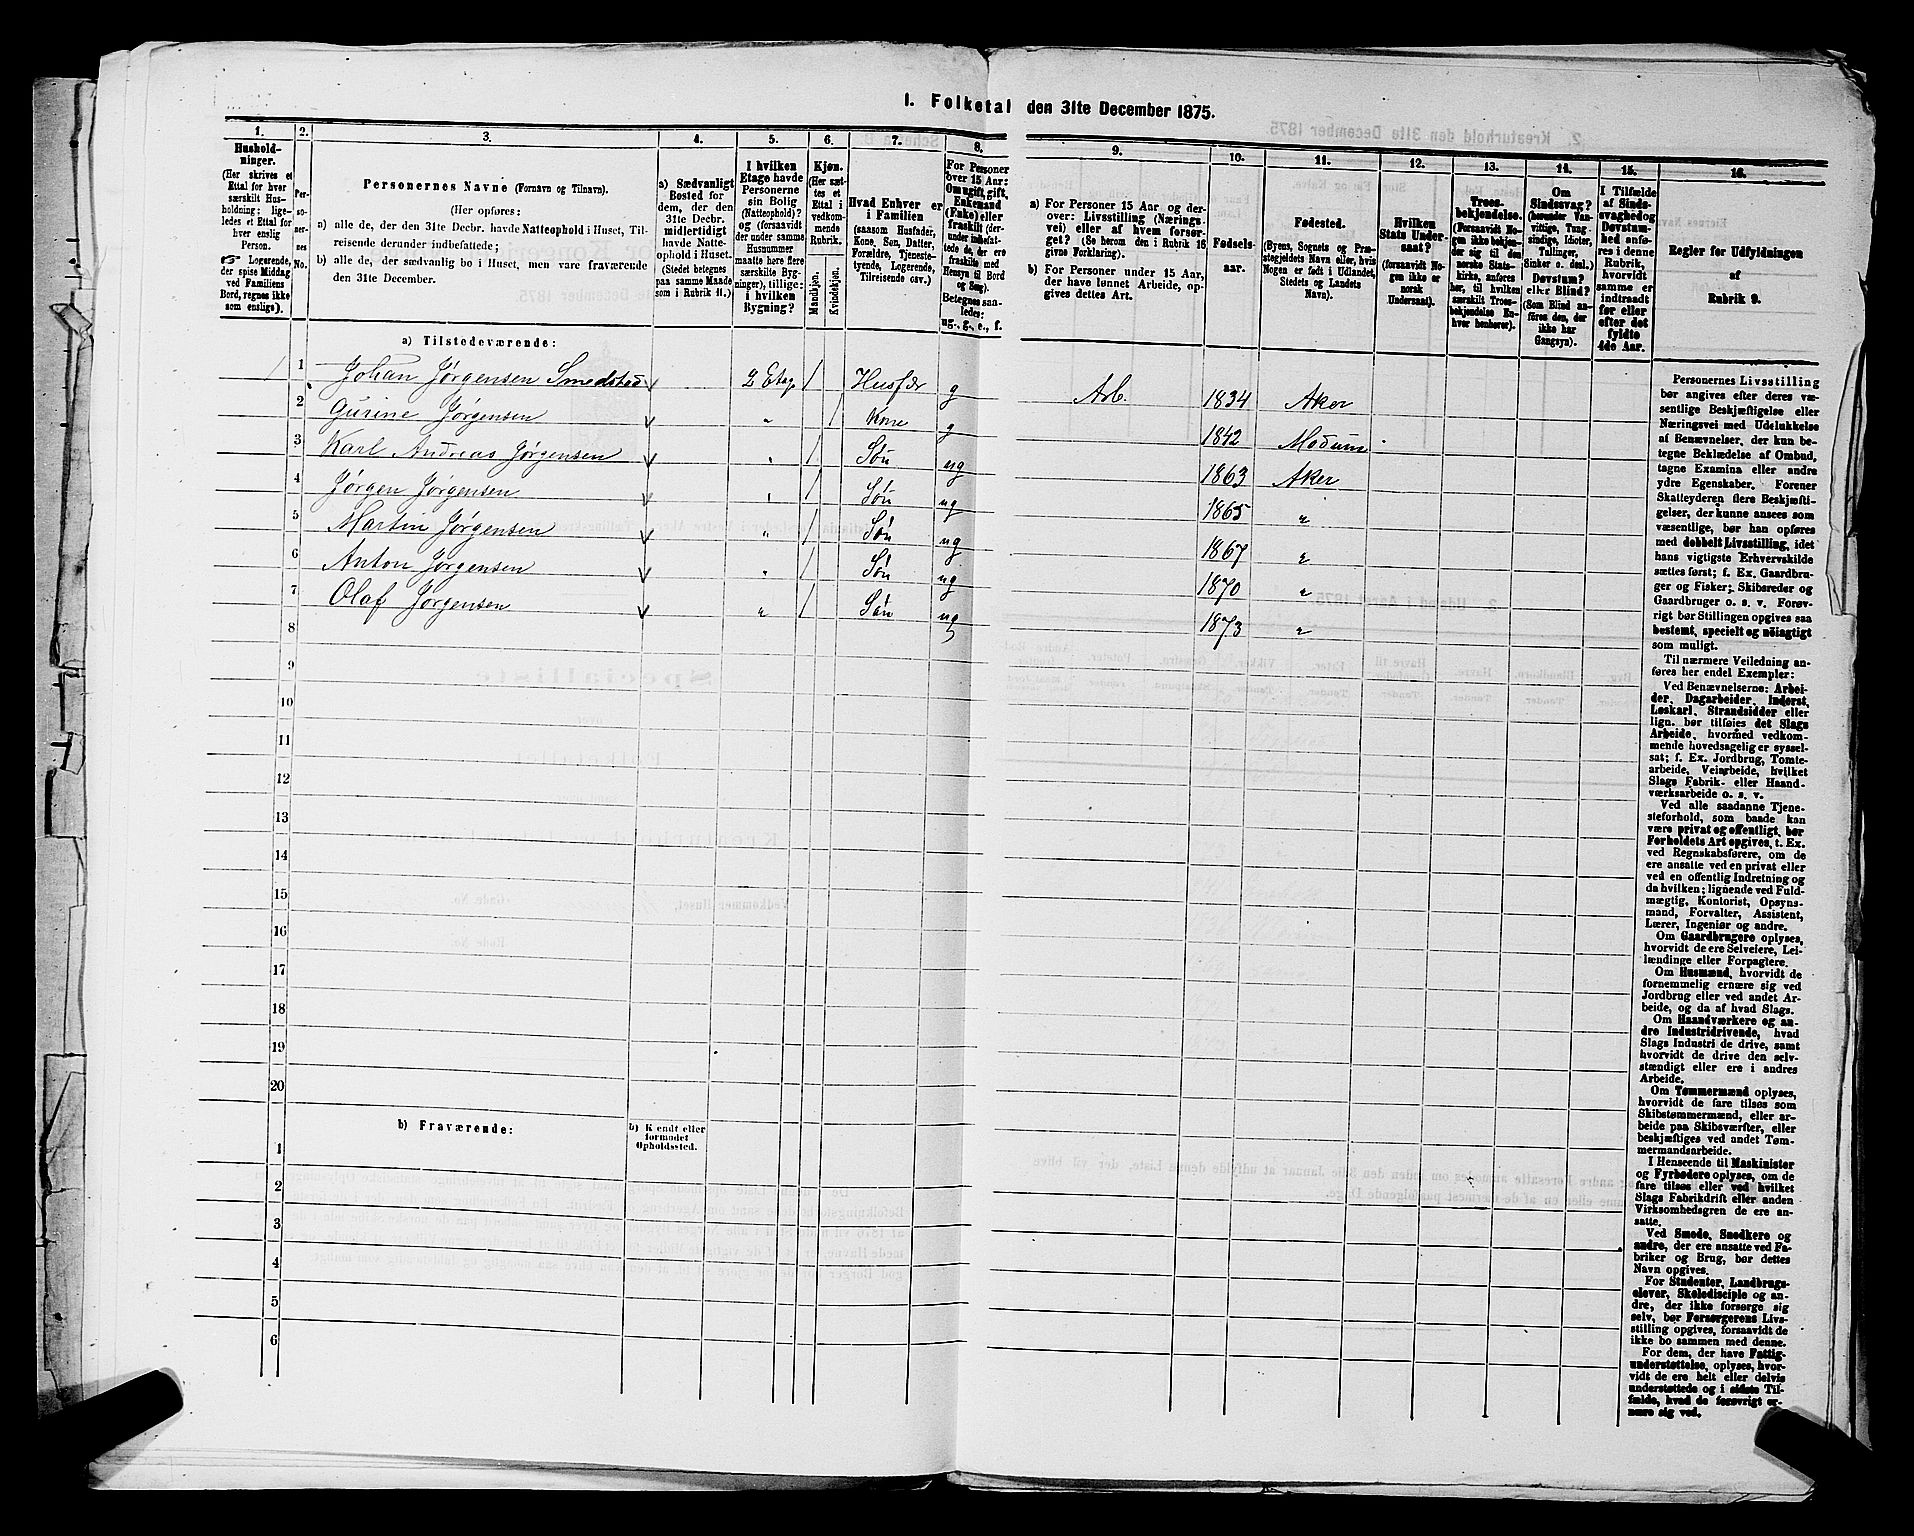 1. Folketal den 31te December 1875.
1.
Hushold-
ninger.
(Her skrives et
Ettal for hver
særskilt Hus-
holdning; lige-
ledes et Ettal for
hver enslig
Person.
Logerende,
der spise Middag
ved Familiens
Bord, regnes ikke
som enslige).
2.
Per-
so-
ner-
nes
No.
3.
Personernes Navne (Fornavn og Tilnavn).
(Her opføres:
a) alle de, der den 31te Decbr. havde Natteophold i Huset, Til-
reisende derunder indbefattede;
b) alle de, der sædvanlig bo i Huset, men vare fraværende
den 31te December.
4.
a) Sædvanligt
Bosted for
dem, der den
31te Decbr.
midlertidigt
havde Natte-
ophold i Huset.
(Stedet betegnes
paa samme Maade
som i Rubrik 11.)
5.
I hvilken
Etage havde
Personerne
sin Bolig
(Natteophold)?
og (forsaavidt
der under samme
Husnummer
maatte høre flere
særskilte Byg-
ninger), tillige:
i hvilken
Bygning?
6.
Kjøn.
(Her sæt-
tes et
Ettal i
vedkom-
mende
Rubrik.
Mandkjøn.
Kvindekjøn.
7.
Hvad Enhver er
i Familien
(saasom Husfader,
Kone, Søn, Datter,
Forældre, Tjeneste-
tyende, Logerende,
Tilreisende osv.)
8.
For Personer
over 15 Aar:
Om ugift, gift,
Enkemand
(Enke) eller
fraskilt (der-
under indbefat-
tede de, der ere
fraskilte med
Hensyn til Bord
og Seng).
Betegnes saa-
ledes:
ug., g., e., f.
9.
a) For Personer 15 Aar og der-
over: Livsstilling (Nærings-
vei) eller af hvem forsør-
get? (Se herom den i Rubrik 16
givne Forklaring).
b) For Personer under 15 Aar,
der have lønnet Arbeide, op-
gives dettes Art.
10.
Fødsels-
aar.
11.
Fødested.
(Byens, Sognets og Præ-
stegjeldets Navn eller, hvis
Nogen er født i Udlandet,
Stedets og Landets
Navn).
12.
Hvilken
Stats Under-
saat?
(forsaavidt No-
gen ikke er
norsk
Undersaat).
13.
Troes-
bekjendelse.
(Forsaavidt No-
gen ikke bekjen-
der sig til den
norske Stats-
kirke, anføres
her, til hvilken
særskilt Troes-
bekjendelse En-
hver henhører).
14.
Om
Sindssvag?
(herunder Van-
vittige, Tung-
sindige, Idioter,
Tullinger,
Sinker o. desl.)
Døvstum?
eller Blind?
(Som Blind an-
føres den, der
ikke har
Gangsyn).
15.
I Tilfælde
af Sinds-
svaghed og
Døvstum-
hed anfø-
res i denne
Rubrik,
hvorvidt
samme er
indtraadt
før eller
efter det
fyldte
4de Aar.
16.
Regler for Udfyldningen
af
Rubrik 9.
a) Tilstedeværende:
1 Johan Jørgensen Smedstad 2 Etag. Husfar g Arb. 1834 Aker
2 Gurine Jørgensen " Kone g 1842 Modum
3 Karl Andreas Jørgensen " Søn ug 1863 Aker
4 Jørgen Jørgensen " Søn ug 1865 "
5 Martin Jørgensen " Søn ug 1867 "
6 Anton Jørgensen " Søn ug 1870 "
7 Olaf Jørgensen " Søn ug 1873 "
8
9
10
11
12
13
14
15
16
17
18
19
20
b) Fraværende:
b) Kjendt eller
formodet
Opholdssted.
1
2
3
4
5
6
Personernes Livsstilling
bør angives efter deres væ-
sentlige Beskjæftigelse eller
Næringsvei med Udelukkelse
af Benævnelser, der kun be-
tegne Beklædelse af Ombud,
tagne Examina eller andre
ydre Egenskaber. Forener
Skatteyderen flere Beskjæfti-
gelser, der kunne ansees som
væsentlige, bør han opføres
med dobbelt Livsstilling, idet
hans vigtigste Erhvervskilde
sættes først; f. Ex. Gaardbru-
ger og Fisker; Skibsreder og
Gaardbruger o. s. v. Forøv-
rigt bør Stillingen opgives saa
bestemt, specielt og nøiagtigt
som muligt.
Til nærmere Veiledning an-
føres her endel Exempler:
Ved Benævnelserne: Arbei-
der, Dagarbeider, Inderst,
Løskarl, Strandsidder eller
lign. bør tilføies det Slags
Arbeide, hvormed vedkom-
mende hovedsagelig er syssel-
sat; f. Ex. Jordbrug, Tomte-
arbeide, Veiarbeide, hvilket
Slags Fabrik- eller Haand-
værksarbeide o. s. v.
Ved alle saadanne Tjene-
steforhold, som baade kan
være privat og offentligt, bør
Forholdets Art opgives, t. Ex.
ved Regnskabsførere, om de
ere ansatte ved en privat eller
ved en offentlig Indretning og
da hvilken; lignende ved Fuld-
mægtig, Kontorist, Opsyns-
mand, Forvalter, Assistent,
Lærer, Ingeniør og andre.
Om Gaardbrugere oplyses,
hvorvidt de ere Selveiere, Lei-
lændinge eller Forpagtere.
Om Husmænd, hvorvidt de
fornemmelig ernære sig ved
Jordbrug eller ved andet Ar-
beide, og da af hvad Slags.
Om Haandværkere og an-
dre Industridrivende, hvad
Slags Industri de drive, samt
hvorvidt de drive den selv-
stændigt eller ere i andres
Arbeide.
Om Tømmermænd oplyses,
hvorvidt de fare tilsøs som
Skibstømmermænd, eller ar-
beide paa Skibsværfter, eller
beskjæftiges ved andet Tøm-
mermandsarbeide.
I Henseende til Maskinister
og Fyrbødere oplyses, om de
fare tilsøs eller ved hvilket
Slags Fabrikdrift eller anden
Virksomhedsgren de ere an-
satte.
Ved Smede, Snedkere og
andre, der ere ansatte ved Fa-
briker og Brug, bør dettes
Navn opgives.
For Studenter, Landbrugs-
elever, Skoledisciple og an-
dre, der ikke forsørge sig
selv, bør Forsørgerens Livs-
stilling opgives, forsaavidt de
ikke bo sammen med denne.
For dem, der have Fattig-
understøttelse, oplyses, hvor-
vidt de ere helt eller delvis
understøttede og i sidste Til-
fælde, hvad de forøvrigt er-
nære sig ved.